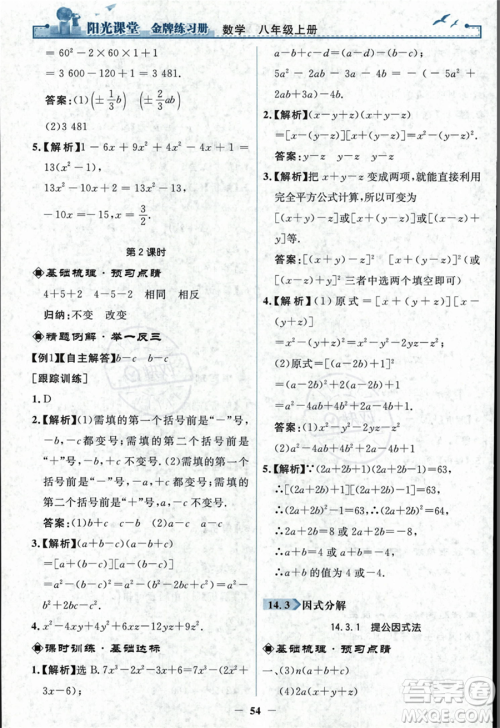 阳光课堂 金牌练习册 数学 八年级上册
=60²-2×60×1+1
=3 600-120+1
=3 481
答案:(1)(±2/3 b) (±4/3 ab)
(2)3 481
5.【解析】1-6x+9x²-4x+4x²=
13(x²-1),
13x²-10x+1=13x²-13,
-10x=-14,x=7/5.
第2课时
基础梳理·预习点睛
4+5+2 4-5-2 相同 相反
归纳:不变 改变
精题例解·举一反三
【例1】【自主解答】b-c b-c
[跟踪训练]
1.D
2.【解析】(1)需填的第一个括号前是“-”号,
-b,-c都变号;需填的第二个括号前是
“+”号,-b,-c都不变号.(2)需填的第
一个括号前是“+”号,b,-c都不变号;需
填的第二个括号前是“-”号,b,-c都
变号.
答案:(1)b+c -b-c (2)b-c -b+c
3.【解析】(a+b-c)(a-b+c)
=[a+(b-c)][a-(b-c)]
=a²-(b-c)²
=a²-(b²-2bc+c²)
=a²-b²+2bc-c².
4.x²-4xy+4y²-6x+12y+9
课时训练·基础达标
1.【解析】选B.7x³-3x²-x+6=7x³-(3x²+
x-6);
a-(b-c-d)=a-b+c+d;
5a²-6a-2b-1=5a²-(6a+2b+1);
2ab+3a-b-1=(2ab+3a)-(b+1).
2.【解析】(x+y-z)(x-y+z)
=[x+(y-z)][x-(y-z)].
答案:y-z y-z
3.【解析】把x+y-z变成两项,就能利用
完全平方公式计算了,可变为
[(x+y)-z]²或[(x-z)+y]²或[x+(y
-z)]².
答案:[(x+y)-z]² [(x-z)+y]²
[x+(y-z)]²(两个填空即可)
4.【解析】(1)原式=[(x+y)+z][(x+y)
-z]
=(x+y)²-z²
=x²+2xy+y²-z².
(2)原式=[(a-2b)+1]²
=(a-2b)²+2(a-2b)+1
=a²-4ab+4b²+2a-4b+1.
答案:(1)x²+2xy+y²-z²
(2)a²-4ab+4b²+2a-4b+1
5.【解析】∵(2a+2b+1)(2a+2b-1)=63,
∴[(2a+2b)+1][(2a+2b)-1]=63,
∴(2a+2b)²-1=63,
∴(2a+2b)²=64,
∴2a+2b=8或2a+2b=-8,
∴a+b=4或a+b=-4.
14.3 因式分解
14.3.1 提公因式法
基础梳理·预习点睛
一、(3)(4)
二、(1)2x(2)4a
54